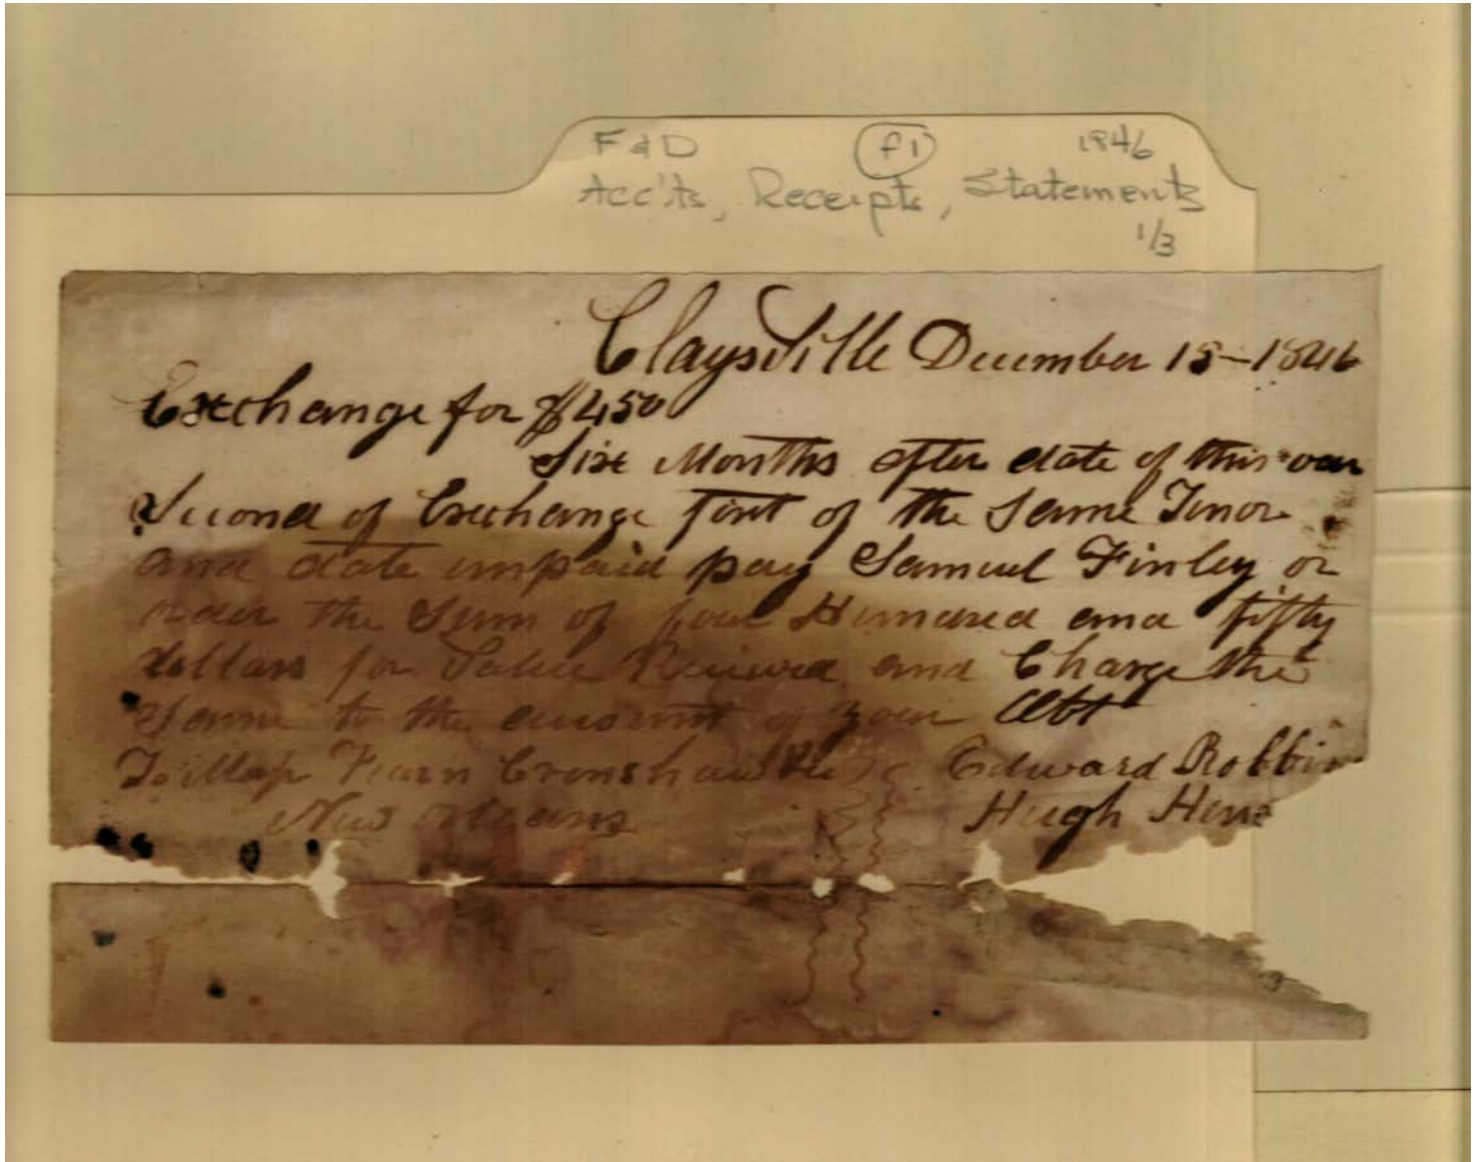 F & D f1 1846
Acc'ts, Receipts, Statements
1/3
Claysville December 15-1846
Exchange for $450
Six Months after date of this our
Second of Exchange first of the Same Tenor
and date unpaid pay Samuel Finley or
order the Sum of four Hundred and fifty
dollars for Value Received and Charge the
Same to the account of your Obt
To Mssrs Fearn Crenshaw & Co Edward Robbin
New Orleans Hugh Henr